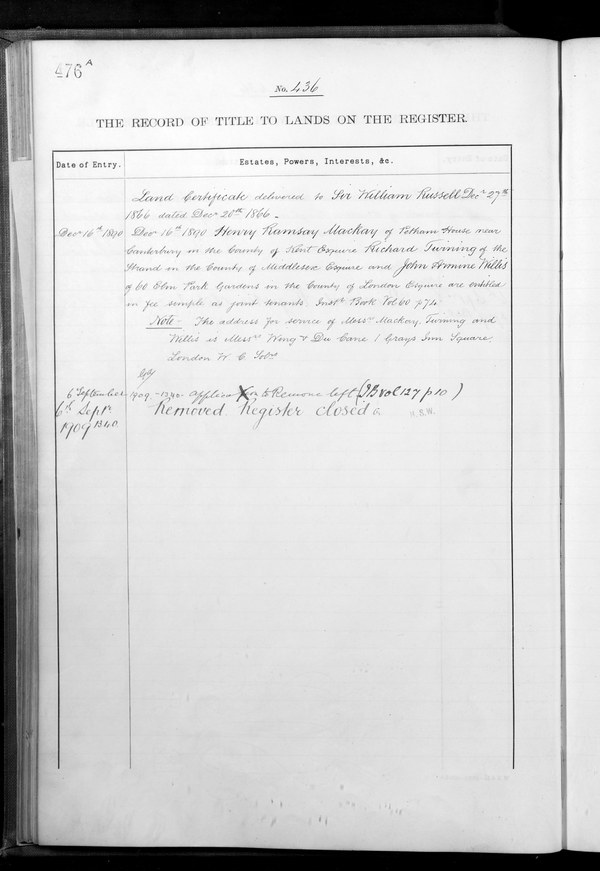 476 A
No. 436
THE RECORD OF TITLE TO LANDS ON THE REGISTER.
Date of Entry. Estates, Powers, Interests, &c.
Land Certificate delivered to Sir William Russell Decr 27th
1866 dated Decr 20th 1866.
Decr 16th 1890 Decr 16th 1890 Henry Ramsay Mackay of Petham House near
Canterbury in the County of Kent Esquire Richard Twining of the
Strand in the County of Middlesex Esquire and John Willis
of 60 Elm Park Gardens in the County of London Esquire are entitled
in fee simple as joint tenants. Inst. Book Vol 60 p 74
Note - The address for service of Messrs Mackay, Twining and
Willis is Messrs Wing & Du Cane 1 Grays Inn Square,
London W. C. Solrs
6 September 1909 - 1340 Applicon to Remove left (IB vol 127 p 10)
6th Septr Removed. Register closed H.S.W.
1909 1340